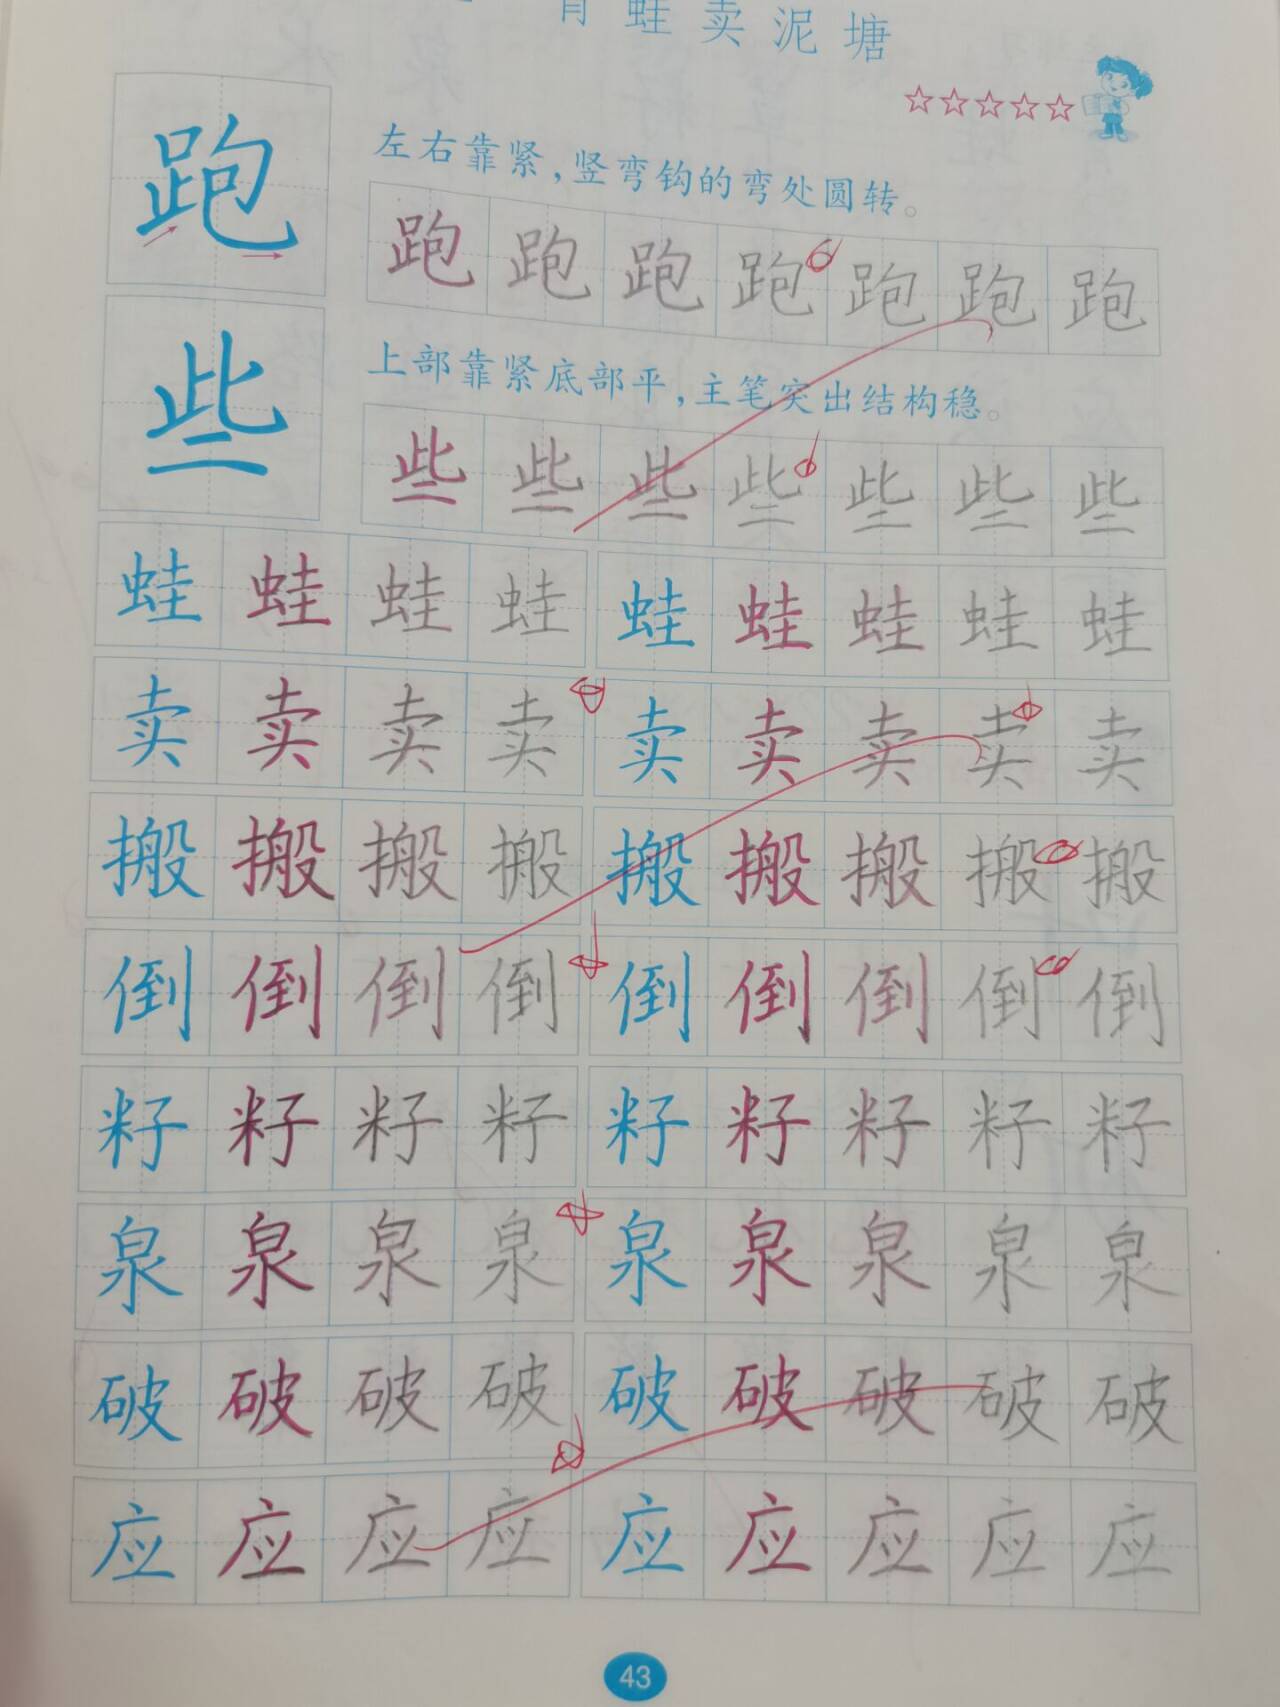 青蛙卖泥塘
跑 左右靠紧，竖弯钩的弯处圆转。
跑 跑 跑 跑 跑 跑 跑
些 上部靠紧底部平，主笔突出结构稳。
些 些 些 些 些 些 些
蛙 蛙 蛙 蛙 蛙 蛙 蛙 蛙 蛙
卖 卖 卖 卖 卖 卖 卖 卖 卖
搬 搬 搬 搬 搬 搬 搬 搬 搬
倒 倒 倒 倒 倒 倒 倒 倒 倒
籽 籽 籽 籽 籽 籽 籽 籽 籽
泉 泉 泉 泉 泉 泉 泉 泉 泉
破 破 破 破 破 破 破 破 破
应 应 应 应 应 应 应 应 应
43